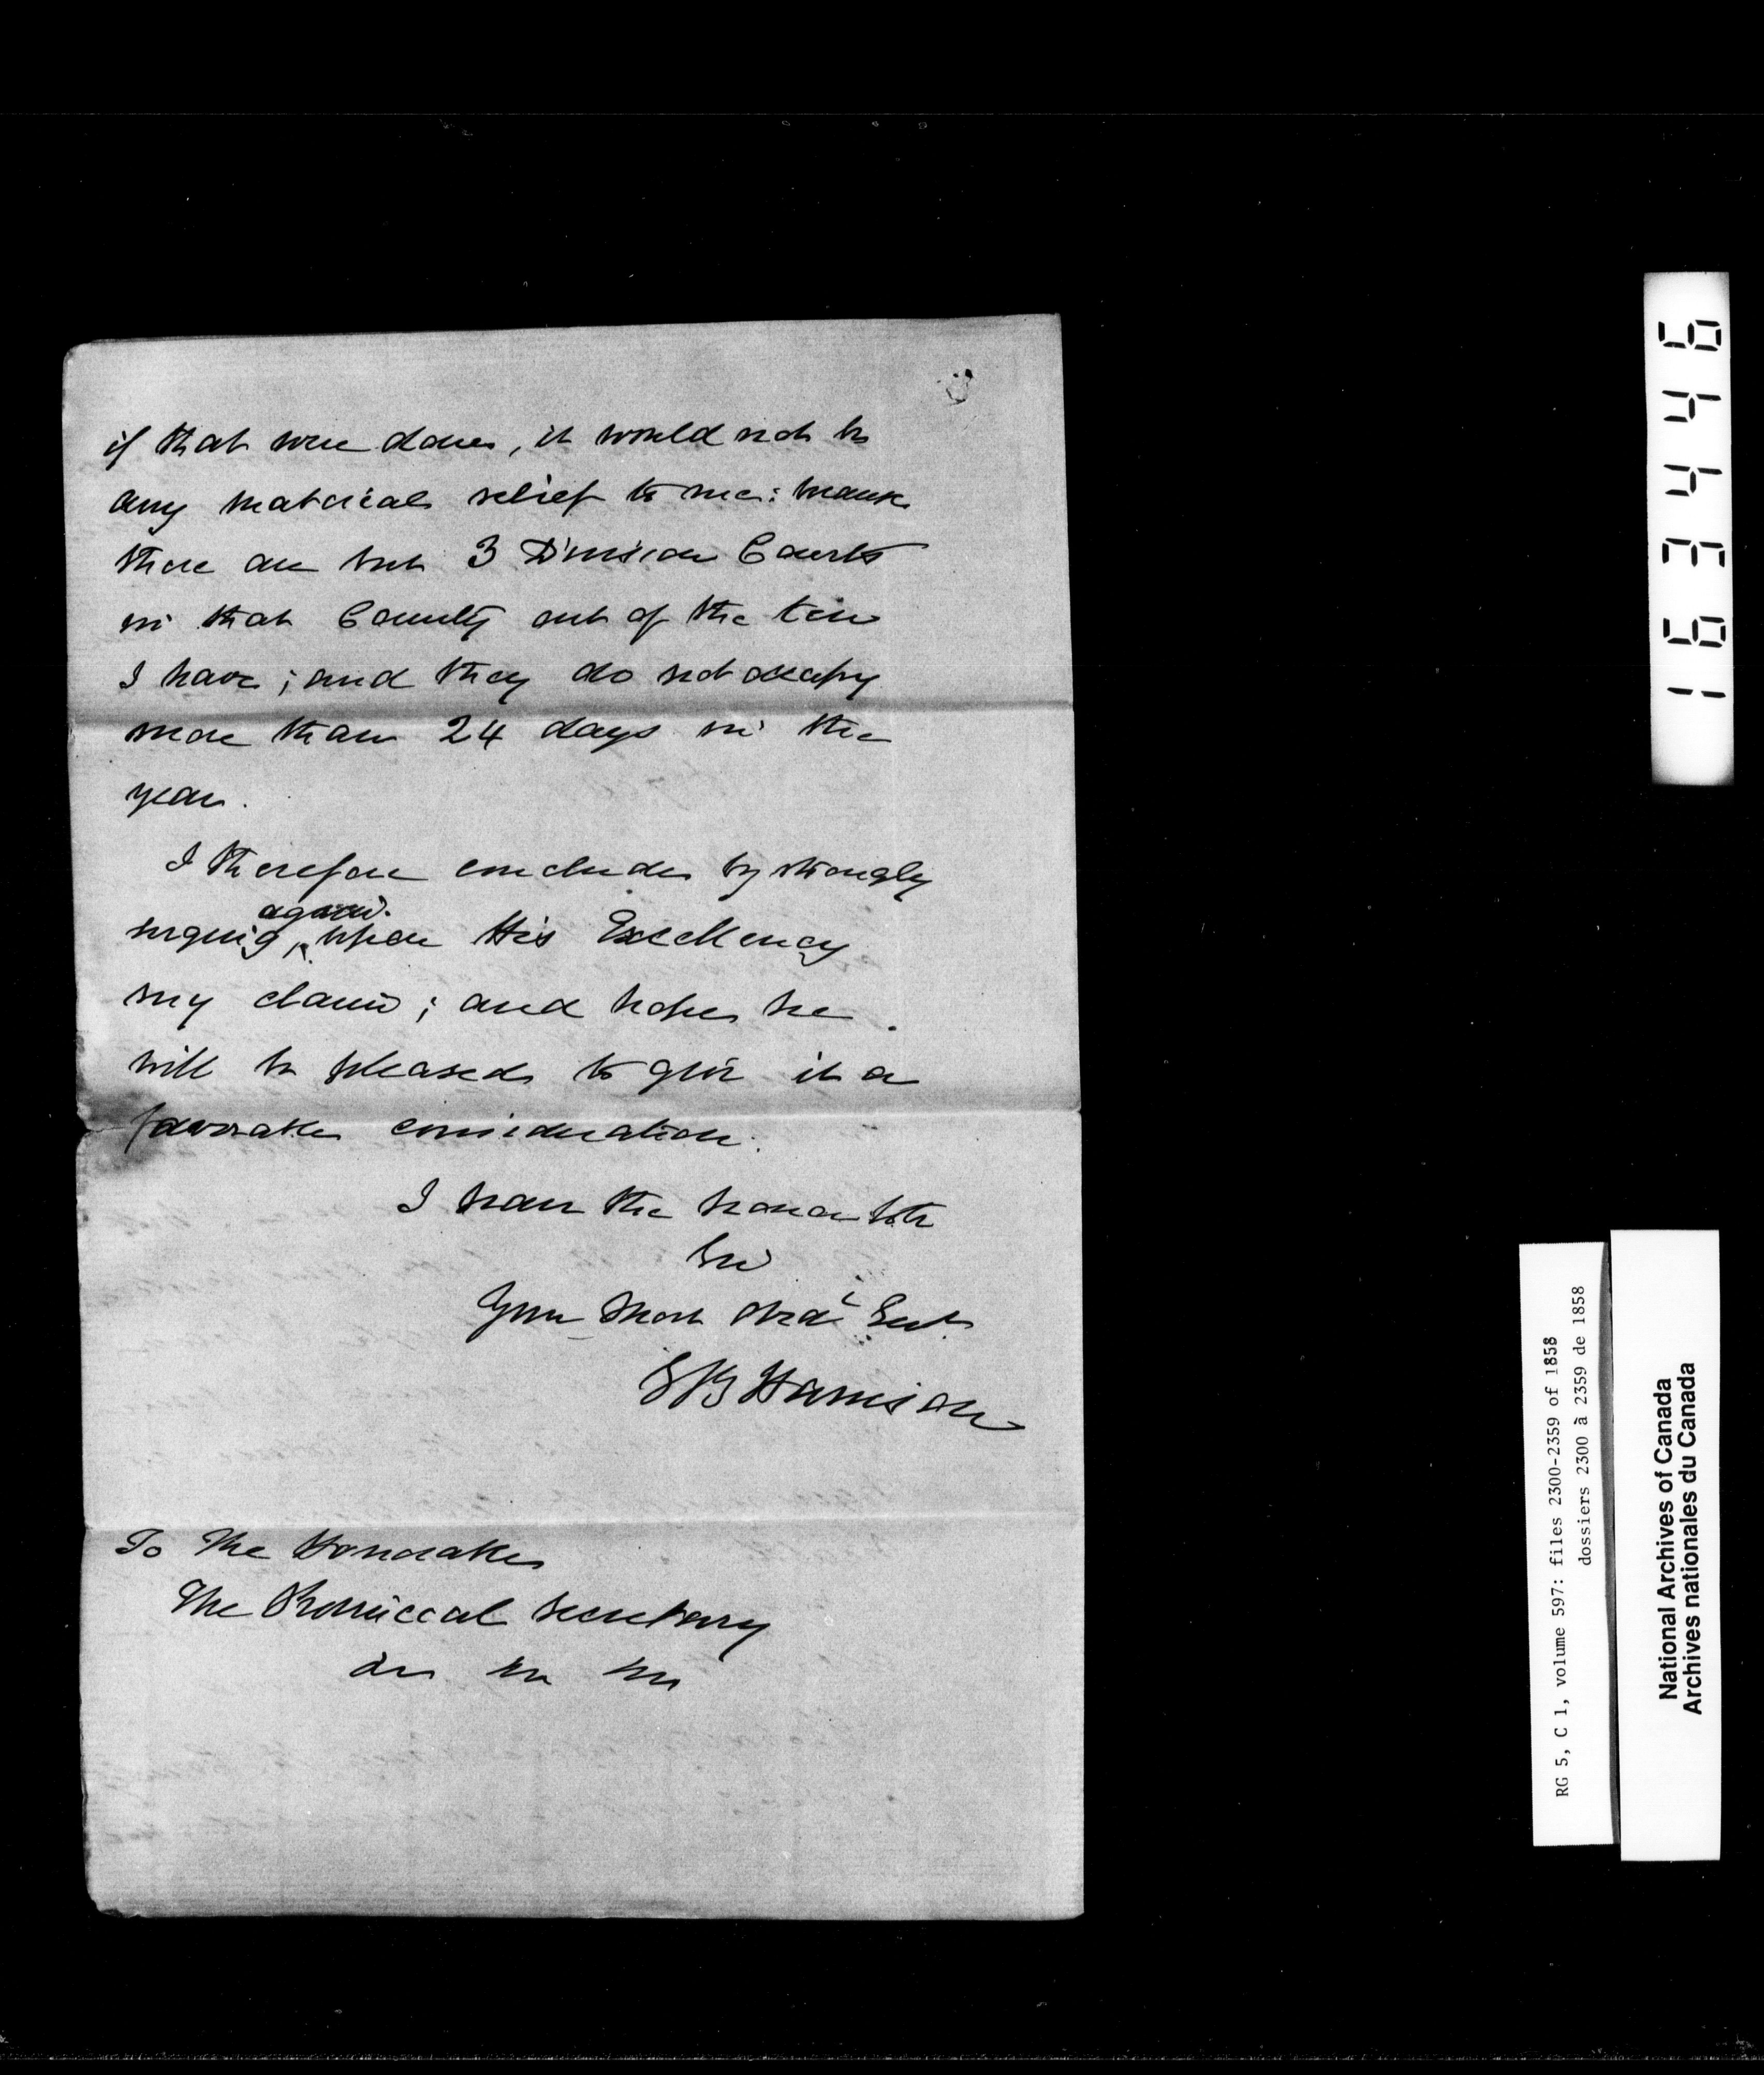 if that were done, it would not be
any material relief to me: because
there are but 3 Division Courts
in that County out of the ten
I have; and they do not occupy
more than 24 days in the
year.
I therefore conclude by strongly
urging again upon His Excellency
my claim; and hope he
will be pleased to give it a
favorable consideration.
I have the honor to be
Sir
Your Most Obdt Servt
S B Harrison
To The Honorable
The Provincial Secretary
163446
RG 5, C 1, volume 597: files 2300-2359 of 1858
dossiers 2300 à 2359 de 1858
National Archives of Canada
Archives nationales du Canada